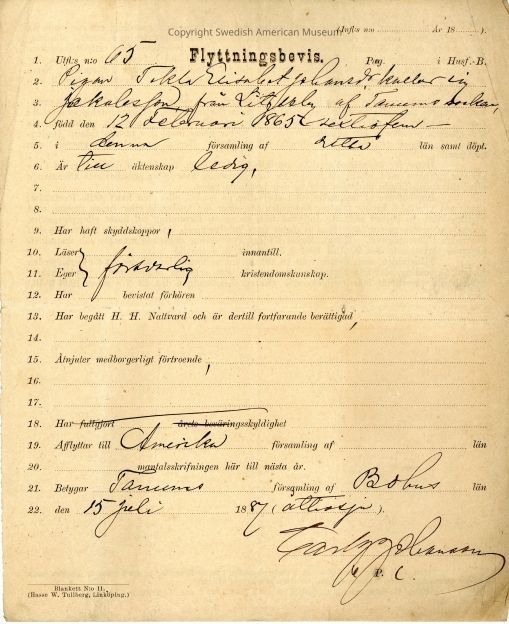 Copyright Swedish American Museum
(Infls n:o År 18 ).
Flyttningsbevis.
1. Utfls n:o 65 Pag. i Husf.-B.
2. Pigan Tekla Elisabet Johansdr kallar sig
3. från af Tanums socken,
4. född den 12 februari 1865 (sextiofem
5. i denna församling af detta län samt döpt.
6. Är till äktenskap ledig,
7.
8.
9. Har haft skyddskoppor,
10. Läser innantill.
försvarlig
11. Eger kristendomskunskap.
12. Har bevistat förhören
13. Har begått H. H. Nattvard och är dertill fortfarande berättigad,
14.
15. Åtnjuter medborgerligt förtroende,
16.
17.
18. Har fullgjort årets beväringsskyldighet
19. Afflyttar till Amerika församling af län
20. mantalsskrifningen här till nästa år.
21. Betygar Tanums församling af Bohus län
22. den 15 juli 1887 (åttiosju).
Carl Johansson
P.
Blankett N:o 11.
(Hasse W. Tullberg, Linköping.)